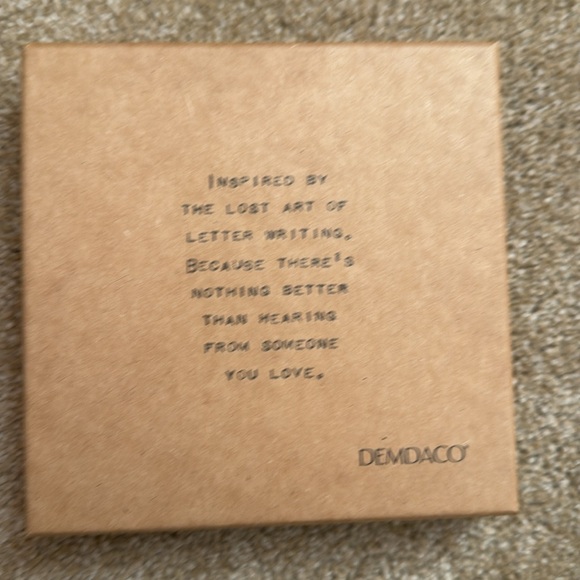 Inspired by
the lost art of
letter writing.
Because there's
nothing better
than hearing
from someone
you love.
DEMDACO